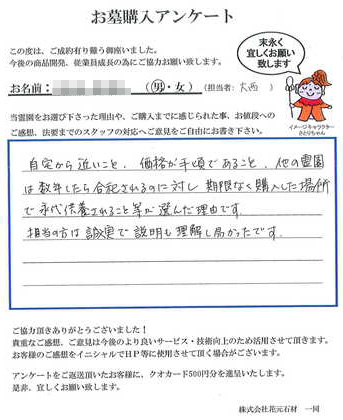 お墓購入アンケート
この度は、ご成約有り難う御座いました。
今後の商品開発、従業員成長の為にご協力お願い致します。
末永く
宜しくお願い
致します
お名前:
(男・女)
(担当者: 大西 )
当霊園をお選び下さった理由や、ご購入までに感じられた事、お値段への
ご感想、法要までのスタッフの対応へご意見をご自由にお書き下さい。
イメージキャラクター
さとりちゃん
自宅から近いこと、価格が手頃であること、他の霊園
は数年したら合祀されるのに対し期限なく購入した場所
で永代供養されること等が選んだ理由です。
担当の方は誠実で説明も理解し易かったです。
ご協力頂きありがとうございました!
貴重なご感想、ご意見は今後のより良いサービス・技術向上のため活用させて頂きます。
お客様のご感想をイニシャルでHP等に使用させて頂く場合がございます。
アンケートをご返送頂いたお客様に、クオカード500円分を進呈いたします。
是非、宜しくお願い致します。
株式会社花元石材 一同